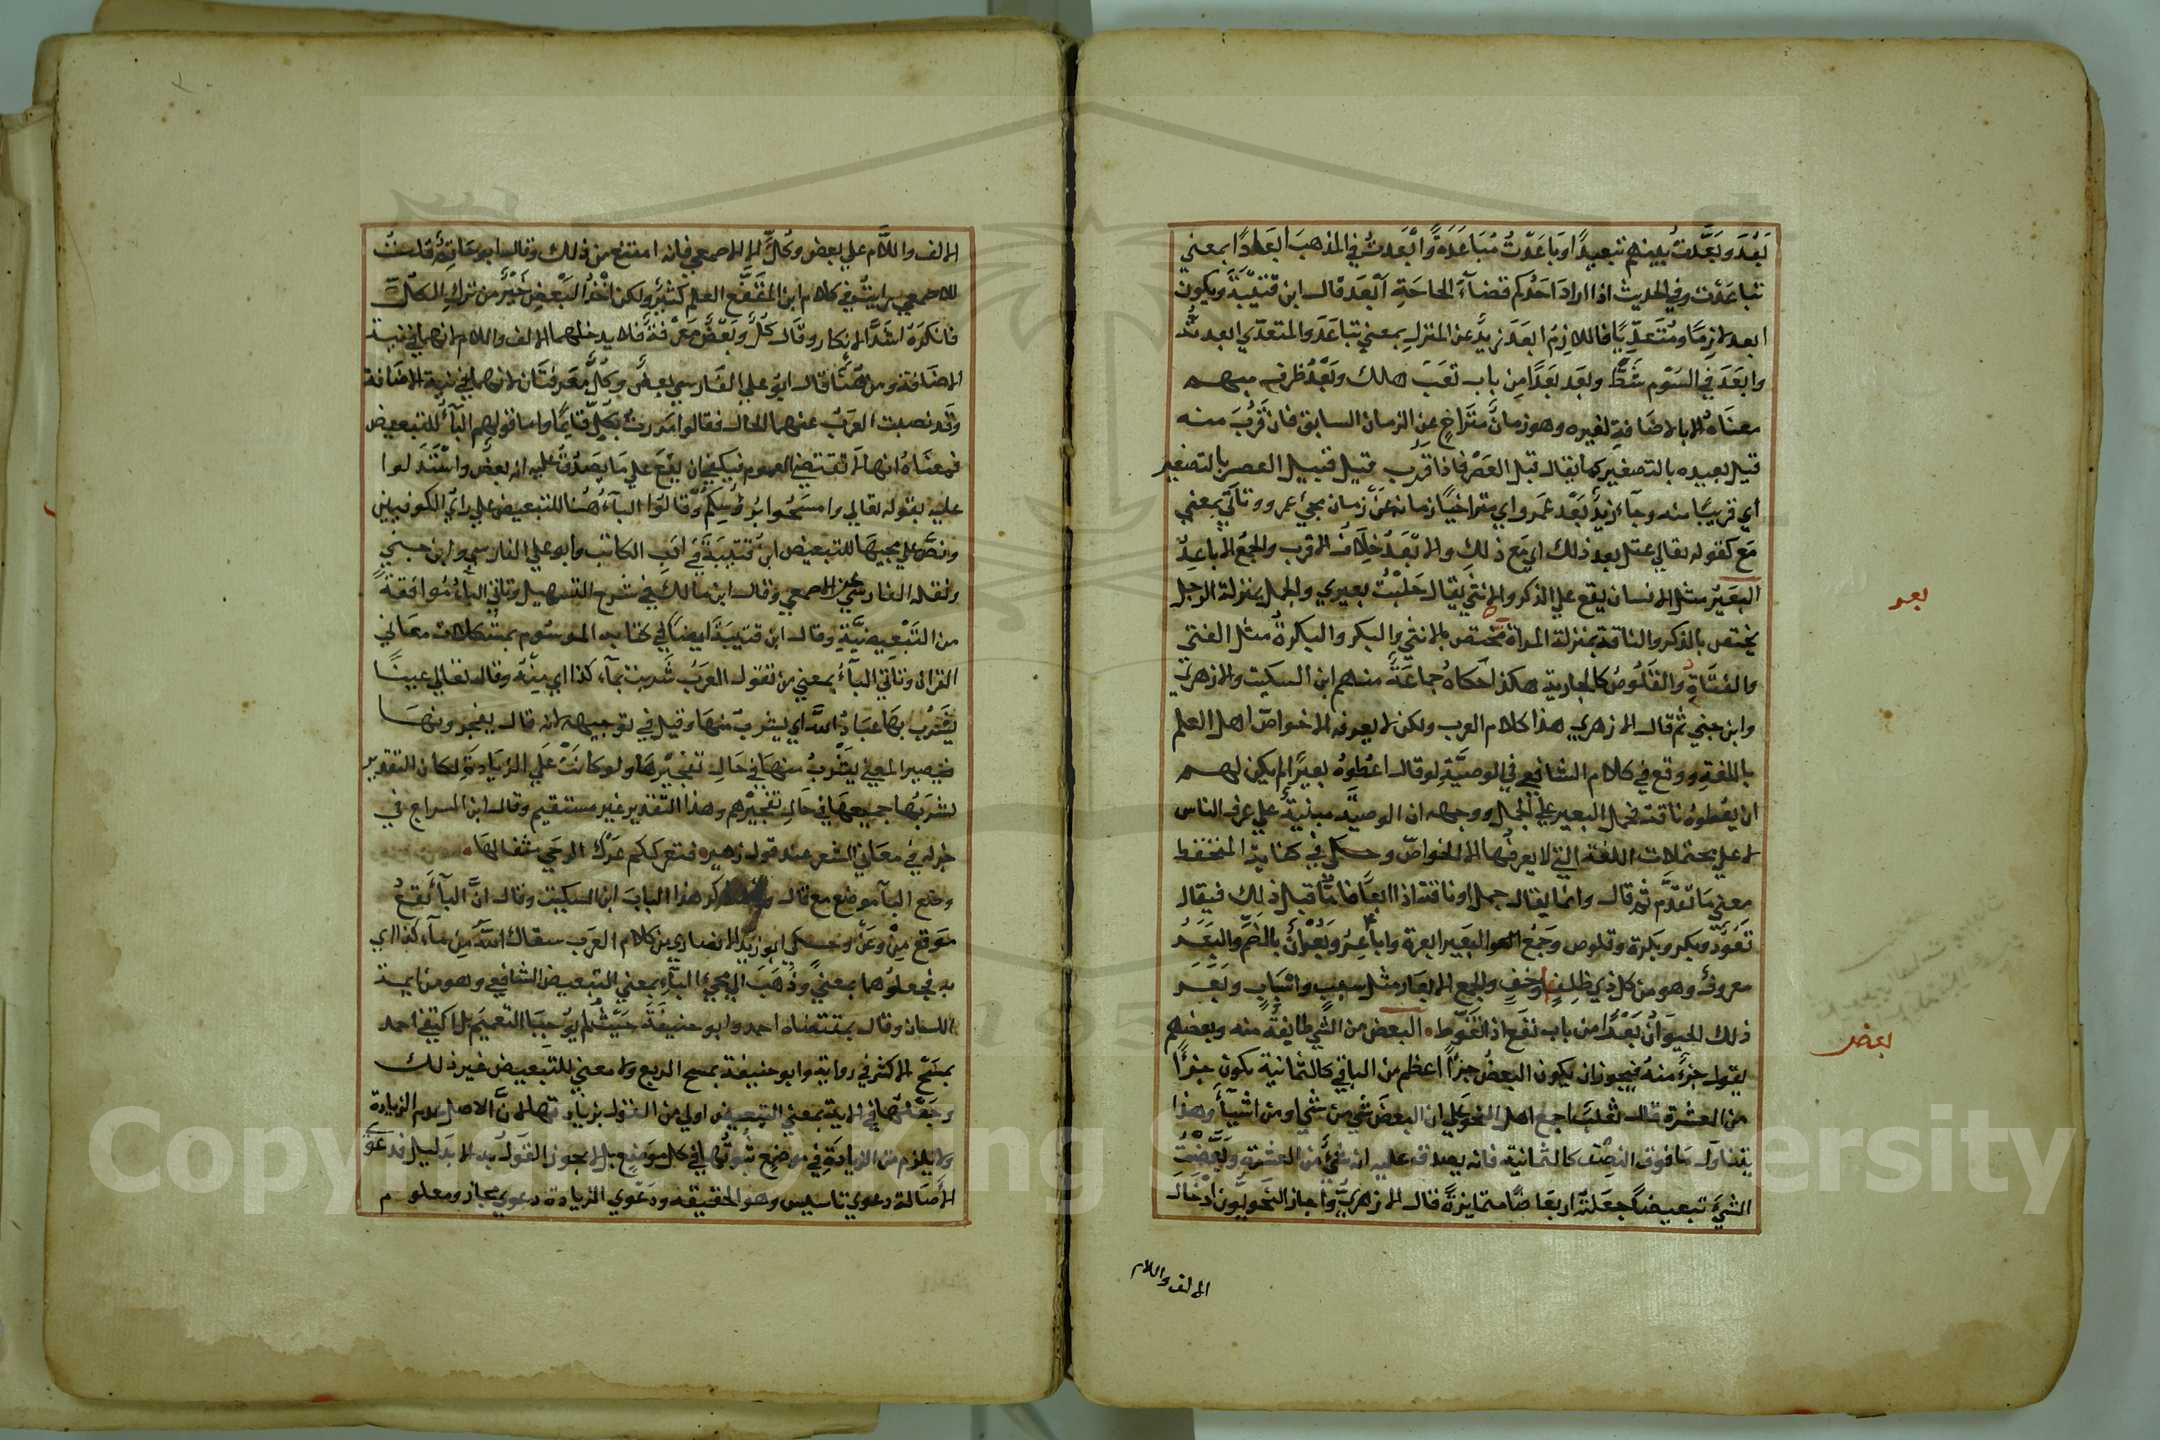 بَعُدَ وبَعَّدتُ بينهم تبعيدًا وباعَدْتُ مُبَاعَدَةً وأبْعَدتُ في المذهبَ ابعَادًا بمعني
تباعَدْت وفي الحديث اذا اراد احدُكم قضآءَ الحاجَةِ ابْعَدَ قال ابن قتيْبَةَ ويكون
ابعد لازمًا ومُتَعدِّيًا فاللازمُ ابعَدَ زيدٌ عن المنزلِ بمعني تباعَدَ والمتعدّي ابعدتُه
وابعَدَ في السَوْم شَطَّ وبَعِد بَعَدًا من باب تعَبَ هلك وبَعْدُ ظرف مبهم
معنَاهُ الا بالاضَافةِ لغيره وهو زمانٌ متَرَاخٍ عن الزمان السابق فان قَرُبَ منه
قيل بعيده بالتصغير كما يقال قبل العَصْر فاذا قرب قيل قبيل العصر بالتصغير
أي قريبًا منه وجآء زيدٌ بَعْد عَمرو اي متراخيًا زمانه عَنْ زمان مجئ عمرو وتاتي بمعني
مَعَ كقوله تعالي عتل بعد ذلك اي مَع ذلِك والابْعَدُ خِلَافُ الاقرب والجمعُ الاباعِدُ
البَعيرُ مثل الانسان يقع علي الذكر والانثي يقال حَلبْتُ بعيري والجمل بمنزلة الرجل
يختص بالذكر والناقة بمنزلة المراة تختص بالانثي والبكر والبكرةُ مثل الفتي
والفتَاةِ والقَلُوصُ كالجارية هكذا حَكاهُ جماعَةٌ منهم ابن السكيت والازهري
وابن جني ثم قال الازهري هذا كلام العرب ولكن لا يعرفه الا خواصّ اهل العلم
باللغةِ ووقع في كلام الشافعي في الوصيَّةِ لو قال اعْطوهُ بعيرًا لم يكن لهم
ان يعْطوهُ ناقة فحمل البعير علي الجمل ووجهه ان الوصيَّة مبنيةٌ علي عرف الناس
لا علي محتملات اللغة التي لا يعرفُها الا الخواصّ وحكي في كفاية المتحفظ
معني مَا تقدَّم ثم قال وانما يقال جمل او ناقة اذا اربعَا فامّا قبل ذلِك فيقال
قعُودٌ وبكر وبكرة وقلوص وجَمْعُ البَعير ابعرة واباعرُ وبُعْرانٌ بالضمِّ والبَعَرُ
معروفٌ وهو من كل ذي ظلفٍ وخفٍ والجمع الابعَار مثل سبب واسْبَابٍ وبَعَر
ذلك الحيوَانُ بَعْرًا من باب نفَع اذا تَغَوّط البعض من الشّي طايفةٌ منه وبعضهم
يقول جزءٌ منهُ فيجوز ان يكون البعضُ جزءًا اعظم من الباقي كالثمانية تكون جزءًا
من العشرة قال ثعلبٌ اجمع اهل النحو علي ان البعضَ شي من شي او من اشيَآءَ وهذا
يتناوَل مَا فوق النصْف كالثمانية فانه يصدق عليه انه شيٌ من العشرةِ وبَعَّضْتُ
الشيَ تبعيضًا جعَلتهُ ابعَاضًا متمايزةً قال الازهريُّ واجاز النحويُّونَ ادْخَال
الالف واللام
بعر
بعض
الالف واللَّام علي بعض وكُلٍّ الا الاصمعي فانه امتنع من ذلك وقال ابو حَاتِمٍ قلتُ
للاصمعي رايتُ في كلام ابن المقَفَّع العلم كثيرٌ ولكن اخْذُ البَعْضِ خَيْرٌ من ترك الكلّ
فانكرَهُ اشدَّ الانكار وقال كُلٌّ وبَعْضٌ معْرفةٌ فلا يدخلهما الالف واللام لانهما في نية
الاضَافة ومن هُنَا قال ابو علي الفَارسي بعضٌ وكُلٌّ مَعرفتَان لانهما في نية الاضَافة
وقد نصبت العرَبُ عنهما الحال فقالوا مررتُ بكلٍّ قايمًا واما قولهم البآءُ للتبعيض
فمعنَاهُ انها لا تقتضي العموم فيكفي ان يقعَ علي مَا يصَدُقُ عليه انه بعضٌ واسْتَدَلوا
عليه بقوله تعالي وامسَحُوا برُؤسِكُمْ وقالُوا البآءُ هُنا للتبعيض علي راي الكوفيين
ونصَّ علي مجيئها للتبعيض ابنُ قتيْبَةَ في ادَبِ الكاتب وابو علي الفارسي وابن جني
ونقله الفارسي عن الاصمعي وقال ابن مالك في شرح التسهيل وتاتي البآءُ مُوافقةً
من التَبْعِيضيَّةِ وقال ابن قتيبَةَ ايضًا في كتابه الموسُوم بمشكلات معاني
القران وتاتي البآءُ بمعني من تقول العرَبُ شَربتُ بمآءِ كذا اي مِنْهُ وقال تعالي عينًا
يشْرَبُ بهَا عبَادُ اللهِ اي يشربُ منهَا وقيل في توجيهه انه قال يفجرونهَا
فيصير المعني يشْربُ منهَا في حَال تفجيْرهَا ولو كانتْ عَلي الزيَادةِ لكان التقدير
يشرَبُها جميعهَا في حَالِ تفجيْرهم وهذا التقدير غير مستقيم وقال ابن السراج في
جزء له في معَاني الشعر عند قول زهير فتعرككم عَرْك الرحَي بثفالهَا
وضع البآ موضع مع قال وذكر هذا البابَ ابن السكيت وقال انَّ البآ تقعُ
موَقع مِنْ وعَنْ وحكي ابو زيد الانصاري من كلام العرَب سقاك اللهُ مِن مآء كذا اي
به فجعلوُهما بمعنيً وذهَبَ الي مجئ البآءِ بمعني التبعيض الشافعي وهو من ايمة
اللسان وقال بمقتضاه احمد وابو حنيفةَ حَيْثُ لم يُوجبَا التعميمَ بل اكتفي احمد
بمسْح الاكثر في رواية وابو حنيفة بمسح الربع ولا معني للتبعيض غير ذلك
وجَعْلُهَا في الاية بمعني التبعيض اولي من القول بزيادتها لانَّ الاصل عدم الزيادة
ولا يلزم من الزيادةِ في موضعٍ ثبُوتُها في كل موَضعٍ بل لا يجوز القَولُ به الا بدَليل فدعوَي
الأصَالة دعوي تاسيس وهو الحقيقة ودَعْوي الزيادة دعوي مجاز ومعلوم